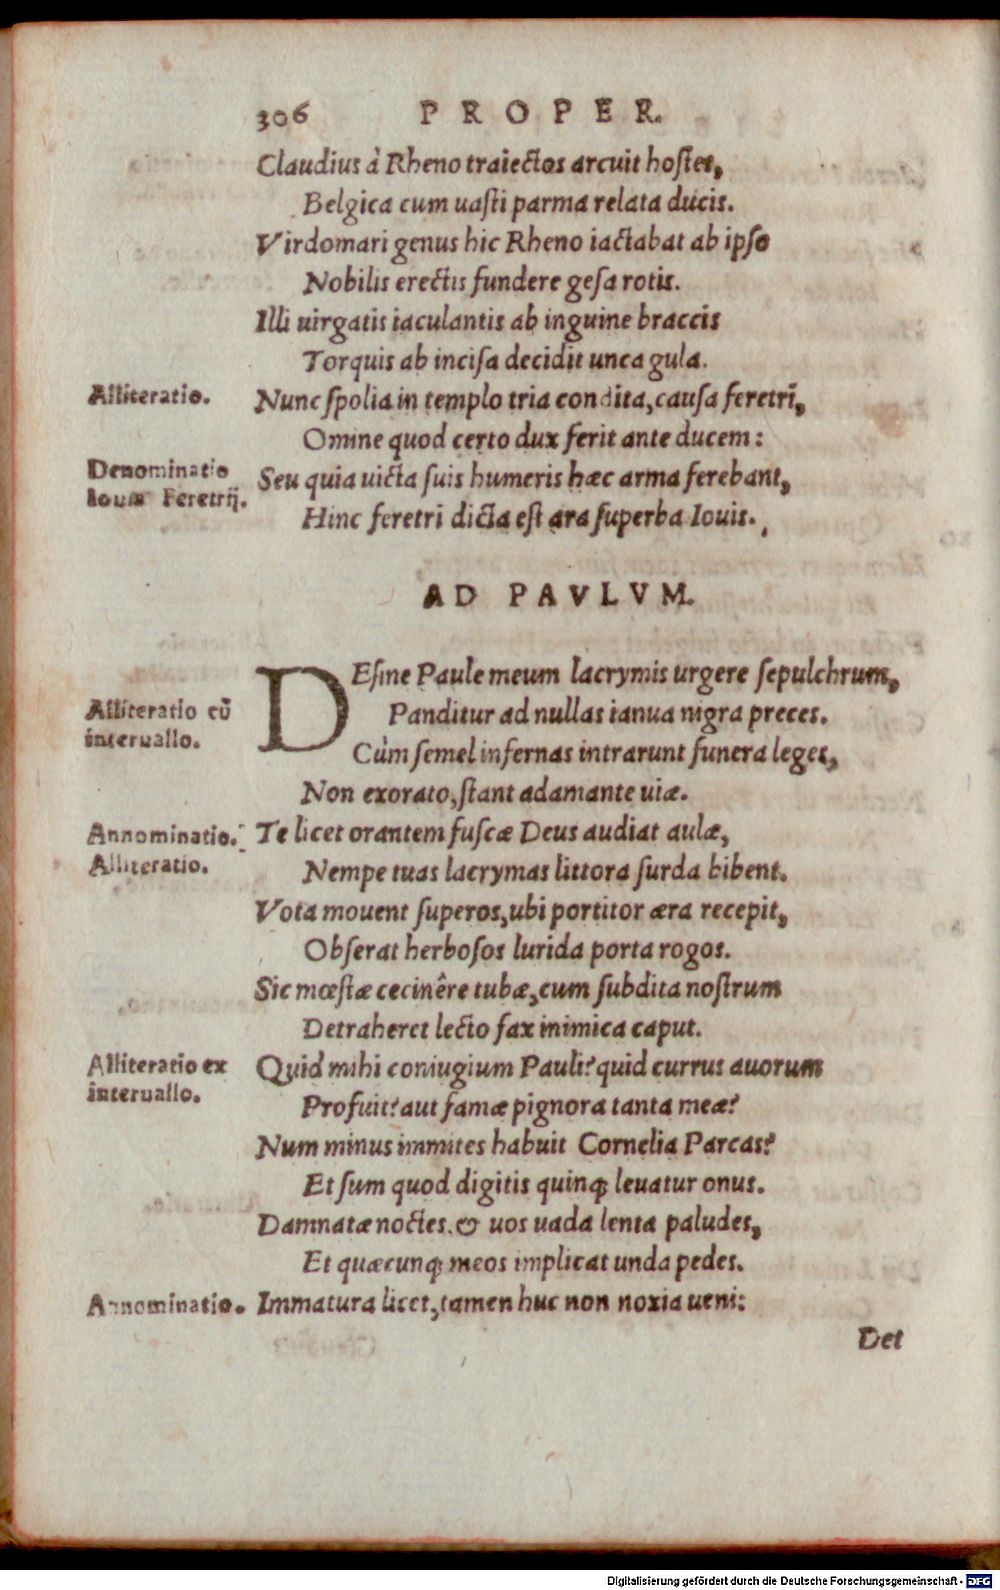 306 PROPER.
Claudius à Rheno traiectos arcuit hostes,
Belgica cum uasti parma relata ducis.
Virdomari genus hic Rheno iactabat ab ipso
Nobilis erectis fundere gesa rotis.
Illi uirgatis iaculantis ab inguine braccis
Torquis ab incisa decidit unca gula.
Alliteratio. Nunc spolia in templo tria condita, causa feretrī,
Omine quod certo dux ferit ante ducem:
Denominatio
Iouis Feretrij.
Seu quia uicta suis humeris hæc arma ferebant,
Hinc feretri dicta est ara superba Iouis.
AD PAVLVM.
DEsine Paule meum lacrymis urgere sepulchrum,
Alliteratio cū
interuallo.
Panditur ad nullas ianua nigra preces.
Cùm semel infernas intrarunt funera leges,
Non exorato, stant adamante uiæ.
Annominatio. Te licet orantem fuscæ Deus audiat aulæ,
Alliteratio. Nempe tuas lacrymas littora surda bibent.
Vota mouent superos, ubi portitor æra recepit,
Obserat herbosos lurida porta rogos.
Sic mœstæ cecinêre tubæ, cum subdita nostrum
Detraheret lecto fax inimica caput.
Alliteratio ex
interuallo.
Quid mihi coniugium Pauli? quid currus auorum
Profuit? aut famæ pignora tanta meæ?
Num minus immites habuit Cornelia Parcas?
Et sum quod digitis quinq; leuatur onus.
Damnatæ noctes. & uos uada lenta paludes,
Et quæcunq; meos implicat unda pedes.
Annominatio. Immatura licet, tamen huc non noxia ueni:
Det
Digitalisierung gefördert durch die Deutsche Forschungsgemeinschaft - DFG